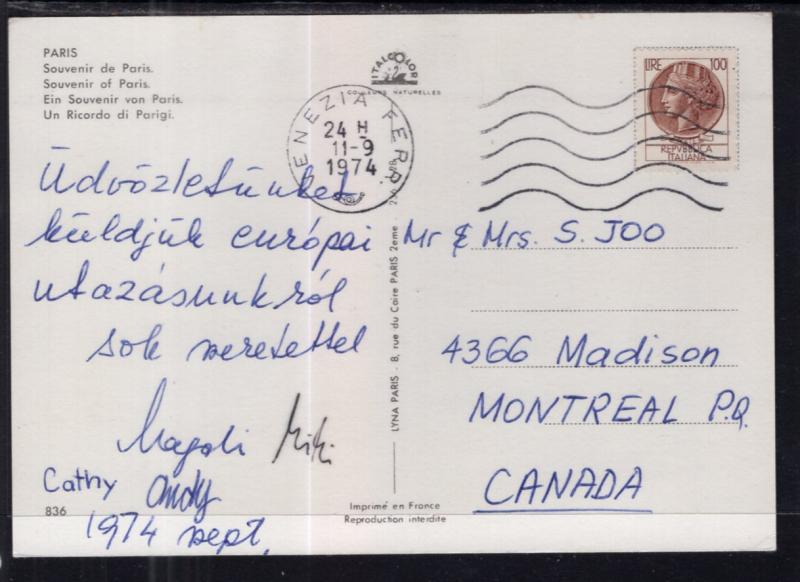 PARIS
Souvenir de Paris.
Souvenir of Paris.
Ein Souvenir von Paris.
Un Ricordo di Parigi.
ITALCOLOR
COULEURS NATURELLES
VENEZIA FERR.
24 H
11-9
1974
LIRE 100
REPVBBLICA
ITALIANA
Üdvözletünket
küldjük európai
utazásunkról
sok szeretettel
Magdi Miki
Cathy Andy
1974 szept.
836
LYNA PARIS - 8, rue du Caire PARIS 2eme
Imprimé en France
Reproduction interdite
Mr & Mrs. S. JOO
4366 Madison
MONTREAL P.Q.
CANADA